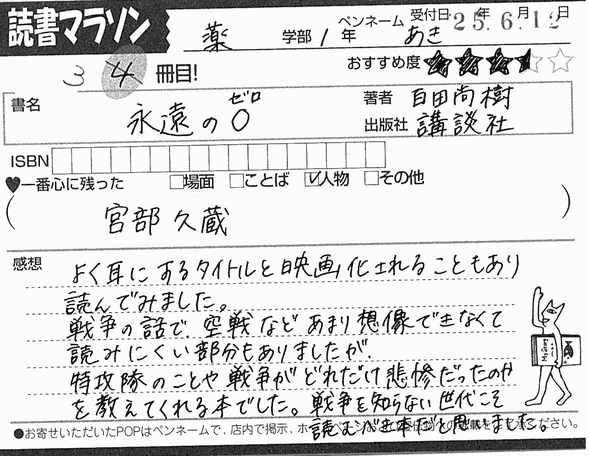 読書マラソン
薬 学部 1 年 ペンネーム あき 受付日 25年6月12日
34 冊目! おすすめ度 ★★★☆
書名 永遠の0 ゼロ 著者 百田尚樹
出版社 講談社
ISBN
♥一番心に残った □場面 □ことば ☑人物 □その他
( 宮部久蔵 )
感想 よく耳にするタイトルと映画化されることもあり
読んでみました。
戦争の話で、空戦などあまり想像できなくて
読みにくい部分もありましたが、
特攻隊のことや戦争がどれだけ悲惨だったのか
を教えてくれる本でした。戦争を知らない世代こそ
読むべき本だと思いました。
●お寄せいただいたPOPはペンネームで、店内で掲示、ホ
ください。